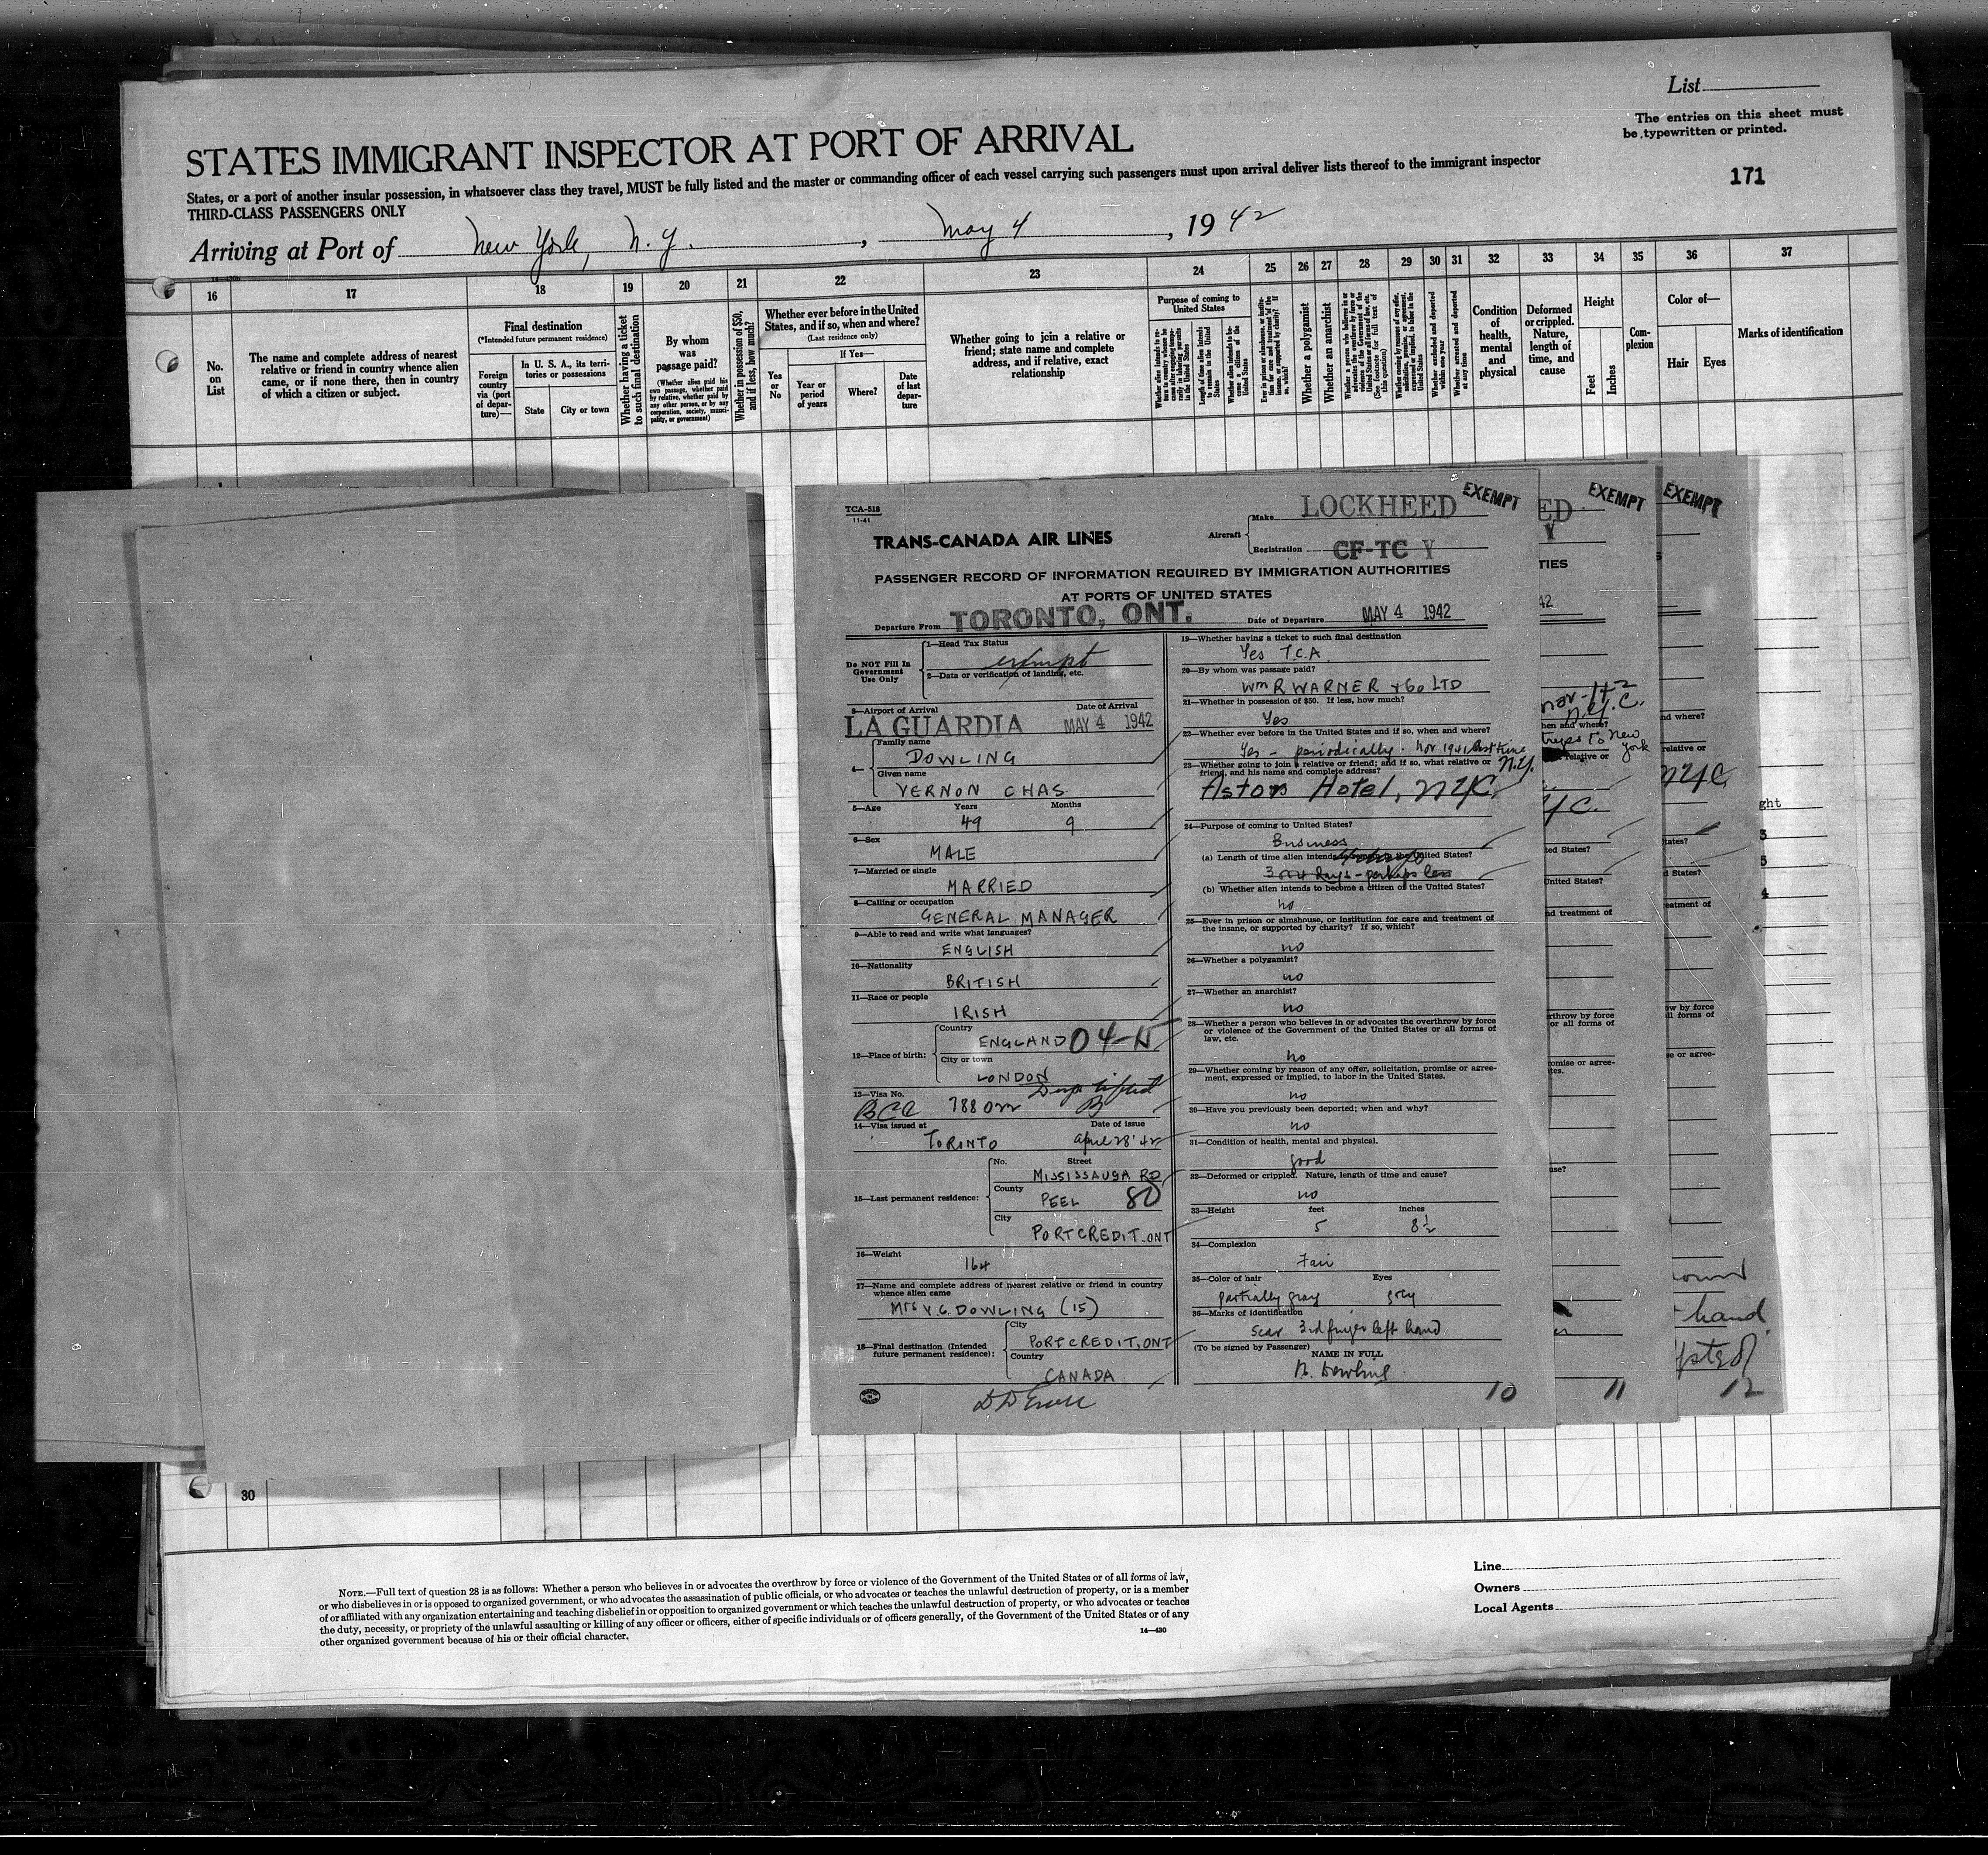 List
The entries on this sheet must
be typewritten or printed.
171
STATES IMMIGRANT INSPECTOR AT PORT OF ARRIVAL
States, or a port of another insular possession, in whatsoever class they travel, MUST be fully listed and the master or commanding officer of each vessel carrying such passengers must upon arrival deliver lists thereof to the immigrant inspector
THIRD-CLASS PASSENGERS ONLY
Arriving at Port of New York, N.Y., May 4, 1942
16 17 18 19 20 21 22 23 24 25 26 27 28 29 30 31 32 33 34 35 36 37
No. on List
The name and complete address of nearest
relative or friend in country whence alien
came, or if none there, then in country
of which a citizen or subject.
Final destination
(*Intended future permanent residence)
Foreign country via (port of departure)—
In U. S. A., its territories or possessions
State
City or town
Whether having a ticket to such final destination
By whom was passage paid?
(Whether alien paid his own passage, whether paid by relative, whether paid by any other person, or by any corporation, society, municipality, or government)
Whether in possession of $50, and if less, how much?
Whether ever before in the United States, and if so, when and where?
(Last residence only)
If Yes—
Yes or No
Year or period of years
Where?
Date of last departure
Whether going to join a relative or
friend; state name and complete
address, and if relative, exact
relationship
Purpose of coming to United States
Whether a polygamist
Whether an anarchist
Condition of health, mental and physical
Deformed or crippled. Nature, length of time, and cause
Height
Feet
Inches
Complexion
Color of—
Hair
Eyes
Marks of identification
TCA-518
11-41
TRANS-CANADA AIR LINES
Aircraft
Make LOCKHEED
EXEMPT
Registration CF-TC Y
PASSENGER RECORD OF INFORMATION REQUIRED BY IMMIGRATION AUTHORITIES
AT PORTS OF UNITED STATES
Departure From TORONTO, ONT. Date of Departure MAY 4 1942
Do NOT Fill In
Government
Use Only
1—Head Tax Status
exempt
2—Data or verification of landing, etc.
3—Airport of Arrival Date of Arrival
LA GUARDIA MAY 4 1942
4—
Family name
DOWLING
Given name
VERNON CHAS.
5—Age Years Months
49 9
6—Sex
MALE
7—Married or single
MARRIED
8—Calling or occupation
GENERAL MANAGER
9—Able to read and write what languages?
ENGLISH
10—Nationality
BRITISH
11—Race or people
IRISH
12—Place of birth:
Country
ENGLAND
City or town
LONDON
13—Visa No.
BCC 788
14—Visa issued at Date of issue
TORONTO April 28 '42
15—Last permanent residence:
No. Street
MISSISSAUGA RD
County
PEEL 80
City
PORT CREDIT. ONT
16—Weight
164
17—Name and complete address of nearest relative or friend in country
whence alien came
Mrs V. C. DOWLING (15)
18—Final destination (Intended
future permanent residence):
City
PORT CREDIT, ONT
Country
CANADA
19—Whether having a ticket to such final destination
Yes T.C.A.
20—By whom was passage paid?
Wm R WARNER & Co LTD
21—Whether in possession of $50. If less, how much?
Yes
22—Whether ever before in the United States and if so, when and where?
Yes - periodically. Nov 1941 last time
N.Y.
23—Whether going to join a relative or friend; and if so, what relative or
friend, and his name and complete address?
Astor Hotel, NYC.
24—Purpose of coming to United States?
Business
(a) Length of time alien intends to remain in the United States?
3 or 4 days - perhaps less
(b) Whether alien intends to become a citizen of the United States?
no
25—Ever in prison or almshouse, or institution for care and treatment of
the insane, or supported by charity? If so, which?
no
26—Whether a polygamist?
no
27—Whether an anarchist?
no
28—Whether a person who believes in or advocates the overthrow by force
or violence of the Government of the United States or all forms of
law, etc.
no
29—Whether coming by reason of any offer, solicitation, promise or agree-
ment, expressed or implied, to labor in the United States.
no
30—Have you previously been deported; when and why?
no
31—Condition of health, mental and physical.
good
32—Deformed or crippled. Nature, length of time and cause?
no
33—Height feet inches
5 8½
34—Complexion
Fair
35—Color of hair Eyes
partially gray grey
36—Marks of identification
scar 3rd finger left hand
(To be signed by Passenger)
NAME IN FULL
10
EXEMPT
11
EXEMPT
NYC
hand
12
30
NOTE.—Full text of question 28 is as follows: Whether a person who believes in or advocates the overthrow by force or violence of the Government of the United States or of all forms of law,
or who disbelieves in or is opposed to organized government, or who advocates the assassination of public officials, or who advocates or teaches the unlawful destruction of property, or is a member
of or affiliated with any organization entertaining and teaching disbelief in or opposition to organized government or which teaches the unlawful destruction of property, or who advocates or teaches
the duty, necessity, or propriety of the unlawful assaulting or killing of any officer or officers, either of specific individuals or of officers generally, of the Government of the United States or of any
other organized government because of his or their official character.
14—430
Line
Owners
Local Agents